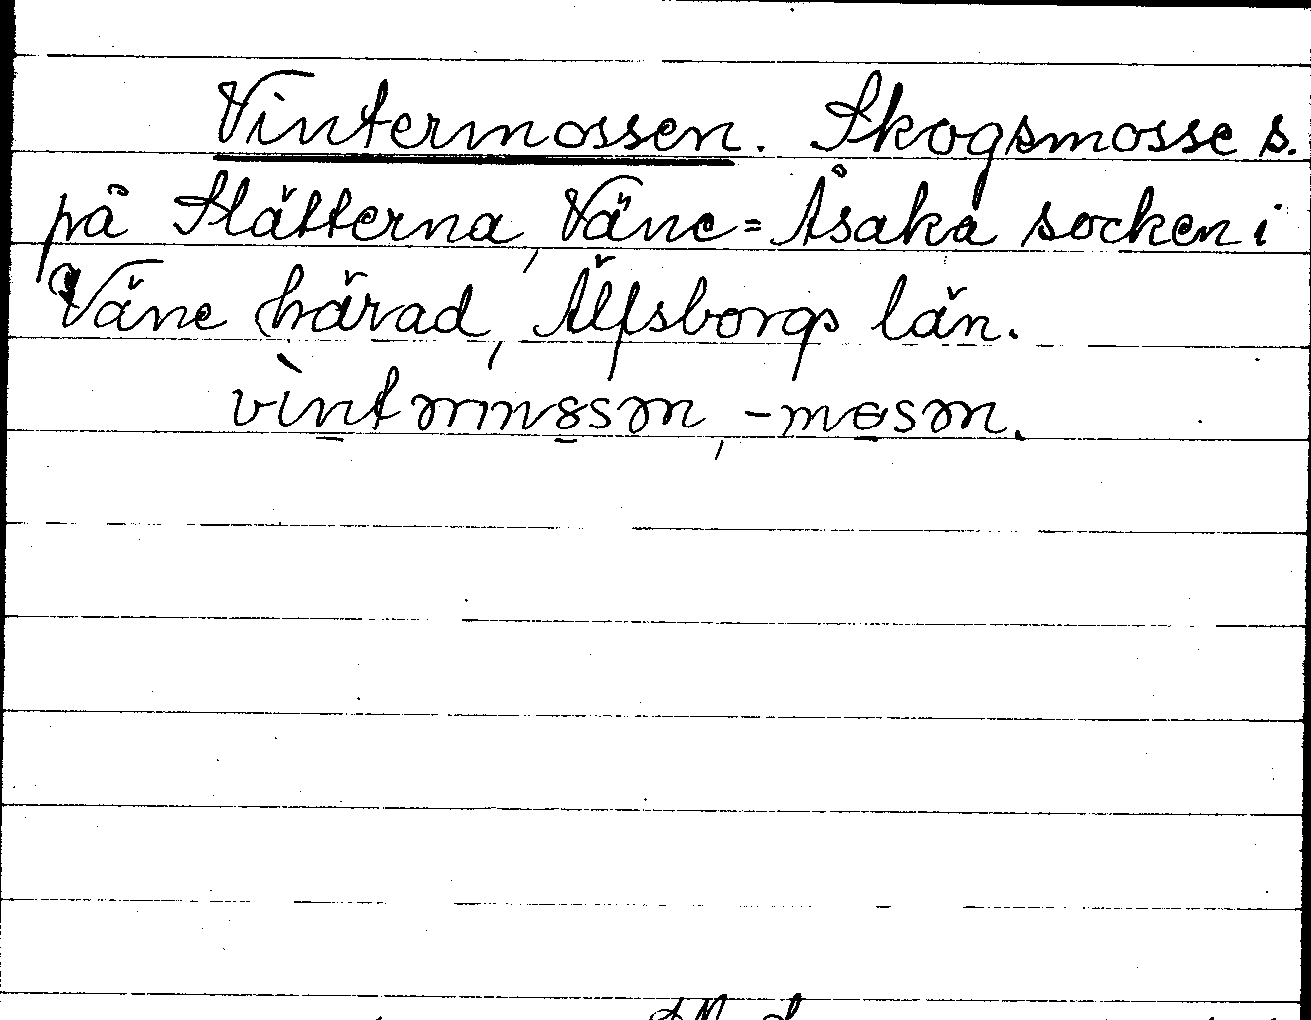 Vintermossen. Skogsmosse s.
på Slätterna, Väne=Åsaka socken i
Väne härad, Älfsborgs län.